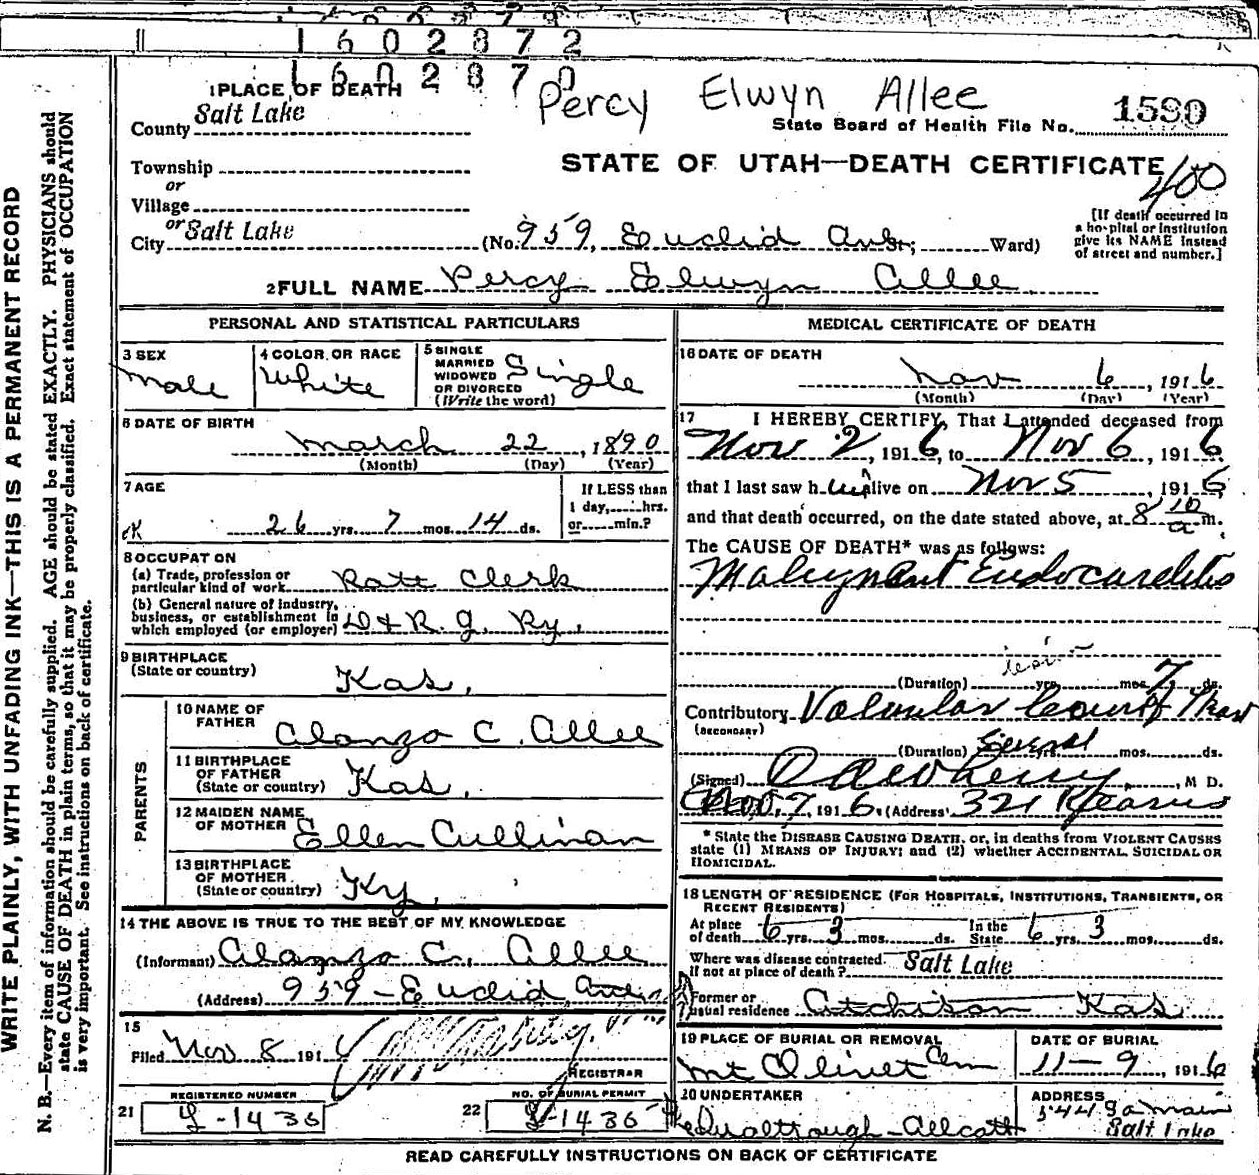 1602872
1602870
1 PLACE OF DEATH
Percy Elwyn Allee
County Salt Lake
State Board of Health File No. 1580
Township
STATE OF UTAH—DEATH CERTIFICATE
400
or
Village
or
City Salt Lake (No. 959, Euclid Ave; Ward)
[If death occurred in
a hospital or institution
give its NAME instead
of street and number.]
2 FULL NAME Percy Elwyn Allee
PERSONAL AND STATISTICAL PARTICULARS
3 SEX
Male
4 COLOR OR RACE
White
5 SINGLE
MARRIED
WIDOWED
OR DIVORCED
(Write the word)
Single
6 DATE OF BIRTH
March 22, 1890
(Month) (Day) (Year)
7 AGE
26 yrs. 7 mos. 14 ds.
If LESS than
1 day, hrs.
or min.?
8 OCCUPATION
(a) Trade, profession or
particular kind of work Rate Clerk
(b) General nature of industry,
business, or establishment in
which employed (or employer) D & R. G. Ry.
9 BIRTHPLACE
(State or country)
Kas.
PARENTS
10 NAME OF
FATHER
Alonzo C. Allee
11 BIRTHPLACE
OF FATHER
(State or country)
Kas.
12 MAIDEN NAME
OF MOTHER
Ellen Cullinan
13 BIRTHPLACE
OF MOTHER
(State or country)
Ky.
14 THE ABOVE IS TRUE TO THE BEST OF MY KNOWLEDGE
(Informant) Alonzo C. Allee
(Address) 959 - Euclid Ave
15
Filed Nov 8 1916
REGISTRAR
REGISTERED NUMBER
21 Y-1436
NO. OF BURIAL PERMIT
22 Y-1436
MEDICAL CERTIFICATE OF DEATH
16 DATE OF DEATH
Nov 6, 1916
(Month) (Day) (Year)
17 I HEREBY CERTIFY, That I attended deceased from
Nov 2, 1916, to Nov 6, 1916
that I last saw him alive on Nov 5, 1916,
and that death occurred, on the date stated above, at 8 10 a m.
The CAUSE OF DEATH* was as follows:
Malignant Endocarditis
(Duration) yrs. mos. 7 ds.
Contributory Valvular
(SECONDARY)
(Duration) Several mos. ds.
(Signed) M D.
Nov. 7, 1916. (Address) 321 Kearns
* State the DISEASE CAUSING DEATH, or, in deaths from VIOLENT CAUSES
state (1) MEANS OF INJURY; and (2) whether ACCIDENTAL, SUICIDAL OR
HOMICIDAL.
18 LENGTH OF RESIDENCE (FOR HOSPITALS, INSTITUTIONS, TRANSIENTS, OR
RECENT RESIDENTS)
At place
of death 6 yrs. 3 mos. ds.
In the
State 6 yrs. 3 mos. ds.
Where was disease contracted
if not at place of death? Salt Lake
Former or
usual residence Atchison Kas.
19 PLACE OF BURIAL OR REMOVAL
Mt Olivet Cem
DATE OF BURIAL
11-9, 1916
20 UNDERTAKER
ADDRESS
544 So Main
Salt Lake
READ CAREFULLY INSTRUCTIONS ON BACK OF CERTIFICATE
WRITE PLAINLY, WITH UNFADING INK—THIS IS A PERMANENT RECORD
N. B.—Every item of information should be carefully supplied. AGE should be stated EXACTLY. PHYSICIANS should
state CAUSE OF DEATH in plain terms, so that it may be properly classified. Exact statement of OCCUPATION
is very important. See instructions on back of certificate.